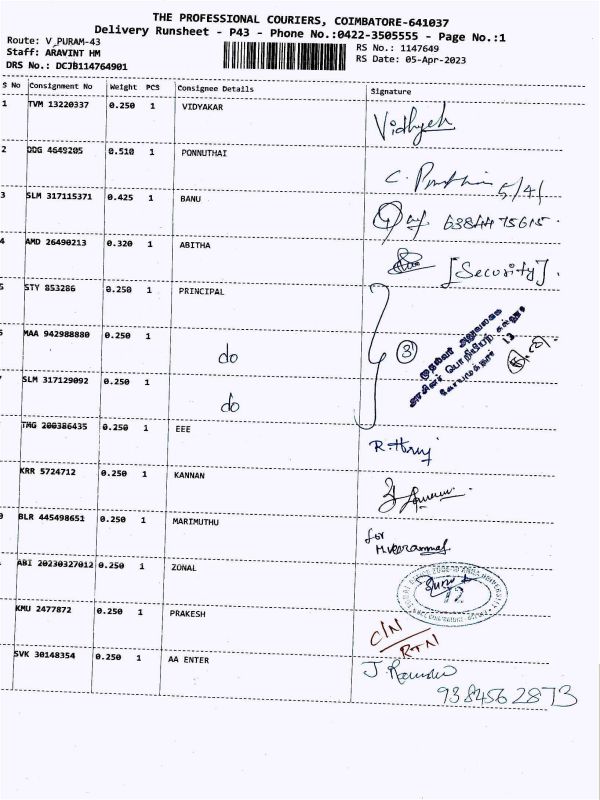 THE PROFESSIONAL COURIERS, COIMBATORE-641037
Delivery Runsheet - P43 - Phone No.:0422-3505555 - Page No.:1
Route: V_PURAM-43
RS No.: 1147649
Staff: ARAVINT HM
RS Date: 05-Apr-2023
DRS No.: DCJB114764901
S No Consignment No Weight PCS Consignee Details Signature
1 TVM 13220337 0.250 1 VIDYAKAR Vidhyeh
2 DDG 4649205 0.510 1 PONNUTHAI C. 5/4/
3 SLM 317115371 0.425 1 BANU 6384475615
4 AMD 26490213 0.320 1 ABITHA [Security].
5 STY 853286 0.250 1 PRINCIPAL
MAA 942988880 0.250 1 do 3
SLM 317129092 0.250 1 do
முதல்வர் அலுவலகம்
அரசினர் பொறியியற் கல்லூரி
கோயமுத்தூர் 13
TMG 200386435 0.250 1 EEE
KRR 5724712 0.250 1 KANNAN
BLR 445498651 0.250 1 MARIMUTHU for
ABI 20230327012 0.250 1 ZONAL 12
KMU 2477872 0.250 1 PRAKESH C/N
RTN
SVK 30148354 0.250 1 AA ENTER J.
9384562873